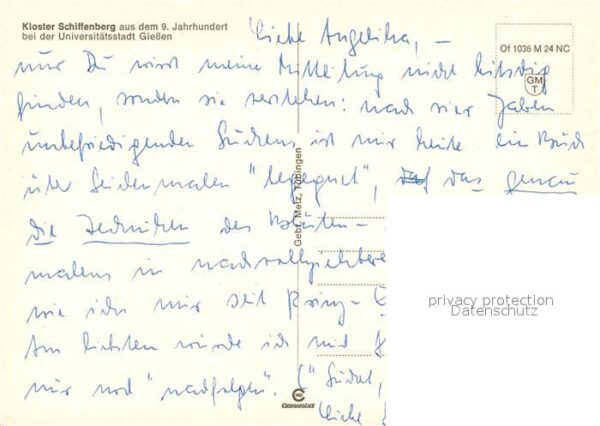 Kloster Schiffenberg aus dem 9. Jahrhundert
bei der Universitätsstadt Gießen
Of 1036 M 24 NC
GM
T
Liebe Angelika, –
nur Du wirst meine Mitteilung nicht
finden, sondern sie verstehen: nach vier Jahren
unbefriedigenden Suchens ist mir heute ein Buch
über Seidenmalen "begegnet", das genau
die Techniken des Blüten-
malens in
wie ich mir seit
Am liebsten würde ich mich
mir noch "nachfolgen". ("Südal,
Liebe
Gebr. Metz, Tübingen
privacy protection
Datenschutz
CHROMOLUX